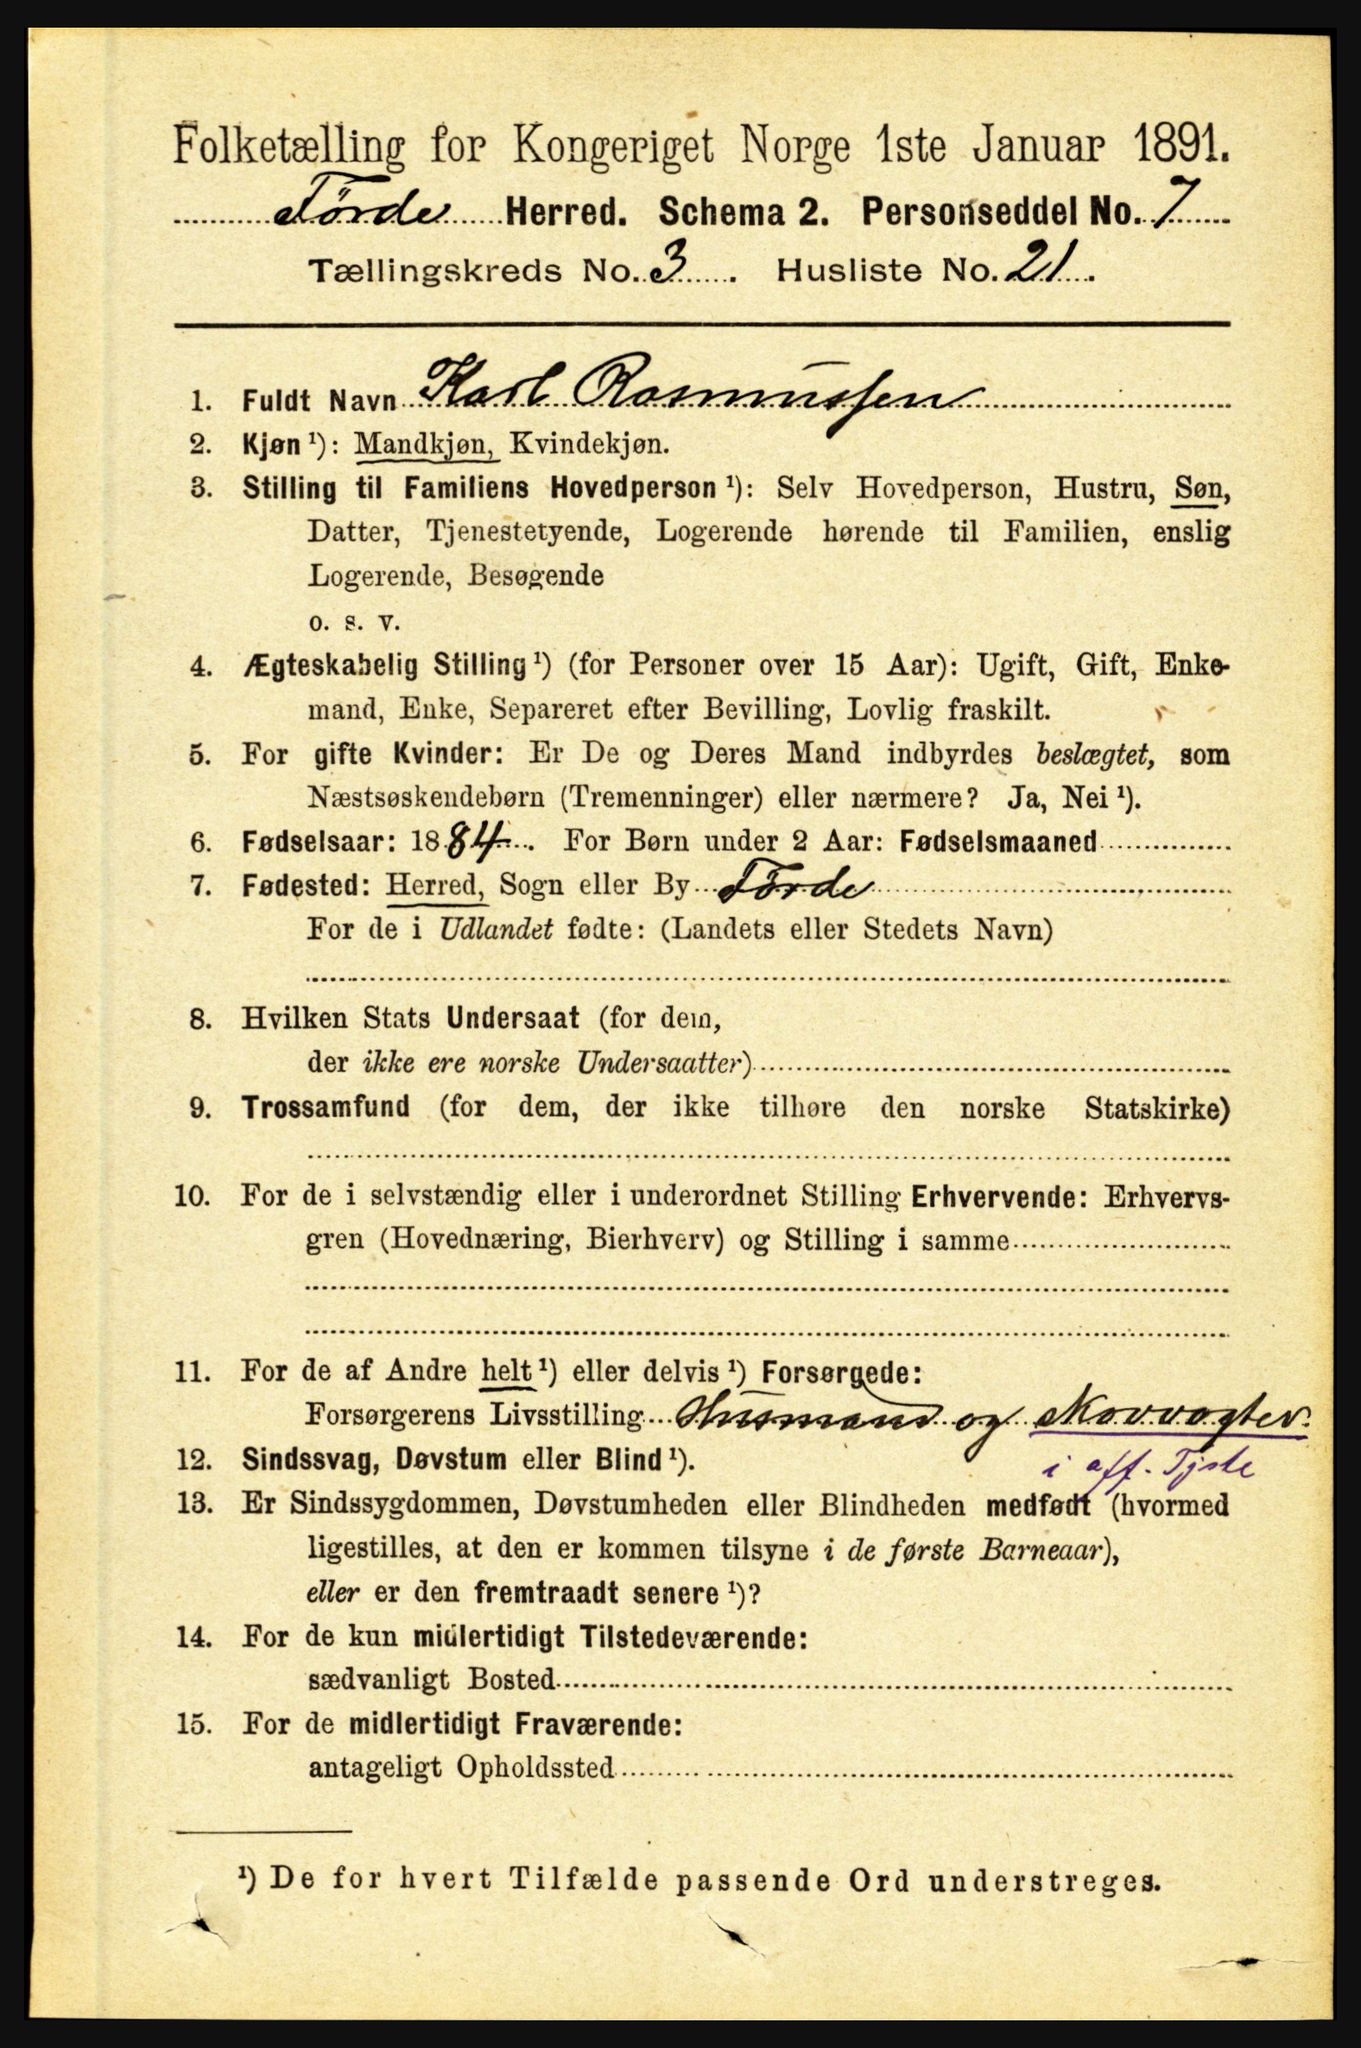 Folketælling for Kongeriget Norge 1ste Januar 1891.
Førde Herred. Schema 2. Personseddel No. 7
Tællingskreds No. 3. Husliste No. 21.
1. Fuldt Navn Karl Rasmussen
2. Kjøn ¹): Mandkjøn, Kvindekjøn.
3. Stilling til Familiens Hovedperson ¹): Selv Hovedperson, Hustru, Søn,
Datter, Tjenestetyende, Logerende hørende til Familien, enslig
Logerende, Besøgende
o. s. v.
4. Ægteskabelig Stilling ¹) (for Personer over 15 Aar): Ugift, Gift, Enke-
mand, Enke, Separeret efter Bevilling, Lovlig fraskilt.
5. For gifte Kvinder: Er De og Deres Mand indbyrdes beslægtet, som
Næstsøskendebørn (Tremenninger) eller nærmere? Ja, Nei ¹).
6. Fødselsaar: 1884. For Børn under 2 Aar: Fødselsmaaned
7. Fødested: Herred, Sogn eller By Førde
For de i Udlandet fødte: (Landets eller Stedets Navn)
8. Hvilken Stats Undersaat (for dem,
der ikke ere norske Undersaatter)
9. Trossamfund (for dem, der ikke tilhøre den norske Statskirke)
10. For de i selvstændig eller i underordnet Stilling Erhvervende: Erhvervs-
gren (Hovednæring, Bierhverv) og Stilling i samme
11. For de af Andre helt ¹) eller delvis ¹) Forsørgede:
Forsørgerens Livsstilling Husmand og Skovvogter
i off. Tjste
12. Sindssvag, Døvstum eller Blind ¹).
13. Er Sindssygdommen, Døvstumheden eller Blindheden medfødt (hvormed
ligestilles, at den er kommen tilsyne i de første Barneaar),
eller er den fremtraadt senere ¹)?
14. For de kun midlertidigt Tilstedeværende:
sædvanligt Bosted
15. For de midlertidigt Fraværende:
antageligt Opholdssted
¹) De for hvert Tilfælde passende Ord understreges.